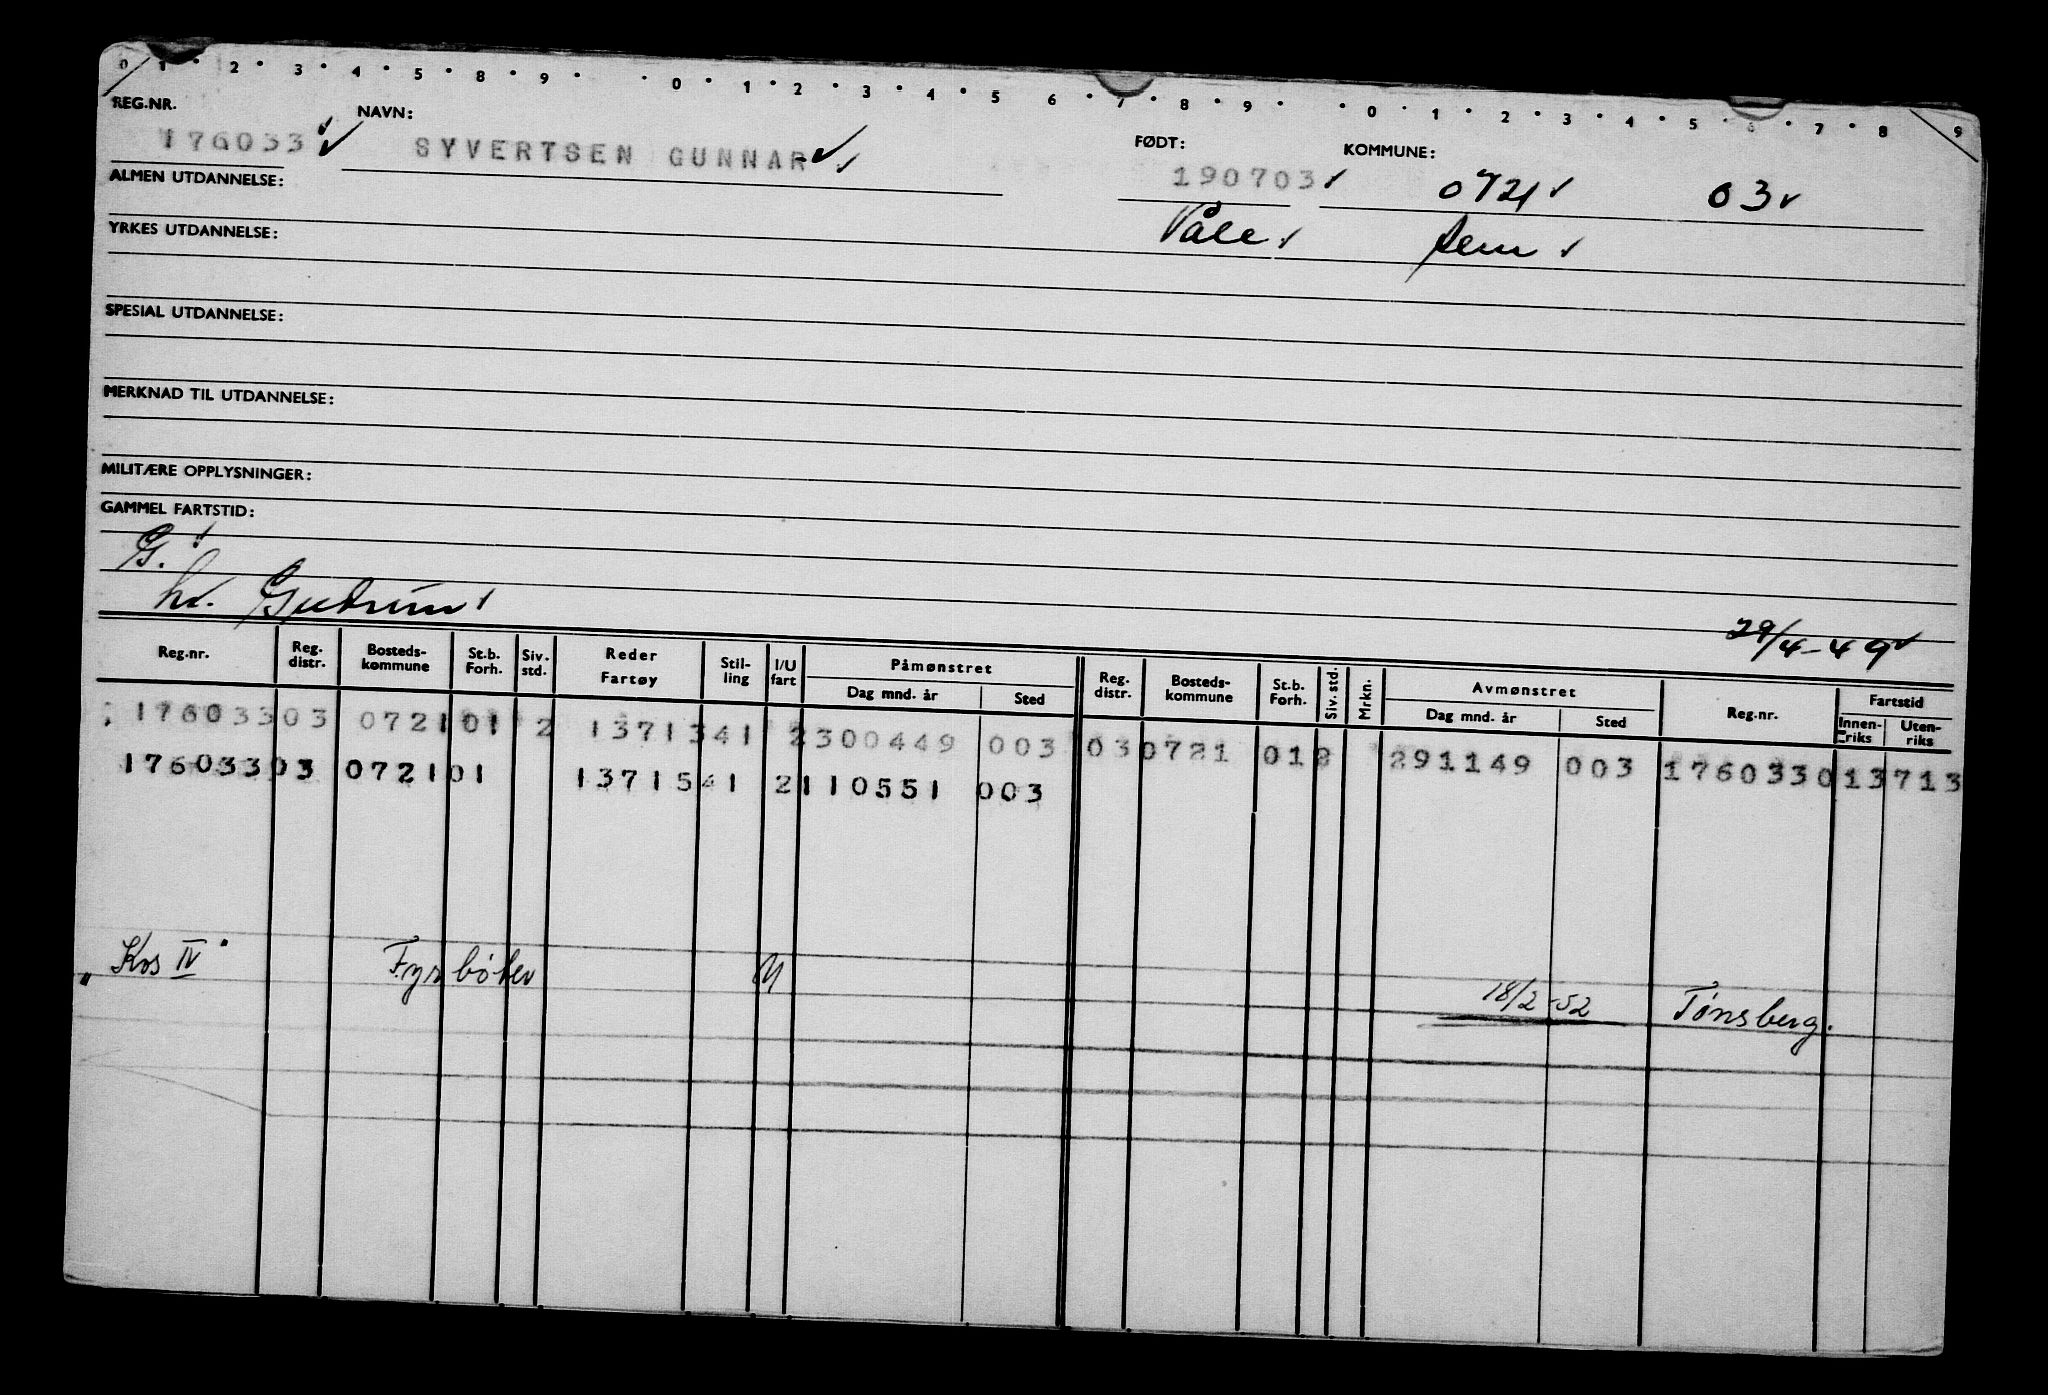 0 1 • 2 • 3 • 4 • 5 • 8 • 9 • • 0 • 1 • 2 • 3 • 4 • 5 6 • 7 • 8 • 9 • • 0 • 1 • 2 • 3 • 4 • 5 • 6 • 7 • 8 9
REG.NR. NAVN: FØDT: KOMMUNE:
176033 SYVERTSEN GUNNAR 190703 0721 03
ALMEN UTDANNELSE:
Våle Sem
YRKES UTDANNELSE:
SPESIAL UTDANNELSE:
MERKNAD TIL UTDANNELSE:
MILITÆRE OPPLYSNINGER:
GAMMEL FARTSTID:
G.
hr. Gudrun
29/4-49
Reg.nr. Reg. distr. Bosteds-kommune St.b. Forh. Siv. std. Reder Fartøy Stil-ling I/U fart Påmønstret Dag mnd. år Sted Reg. distr. Bosteds-kommune St.b. Forh. Siv. std. Mrkn. Avmønstret Dag mnd. år Sted Reg.nr. Fartstid Innen-riks Uten-riks
176033 03 0721 01 2 13713 41 2 300449 003 03 0721 01 2 291149 003 176033 013 713
176033 03 0721 01 13715 41 2 110551 003
"Kos IV" Fyrbøter U 18/2-52 Tønsberg.